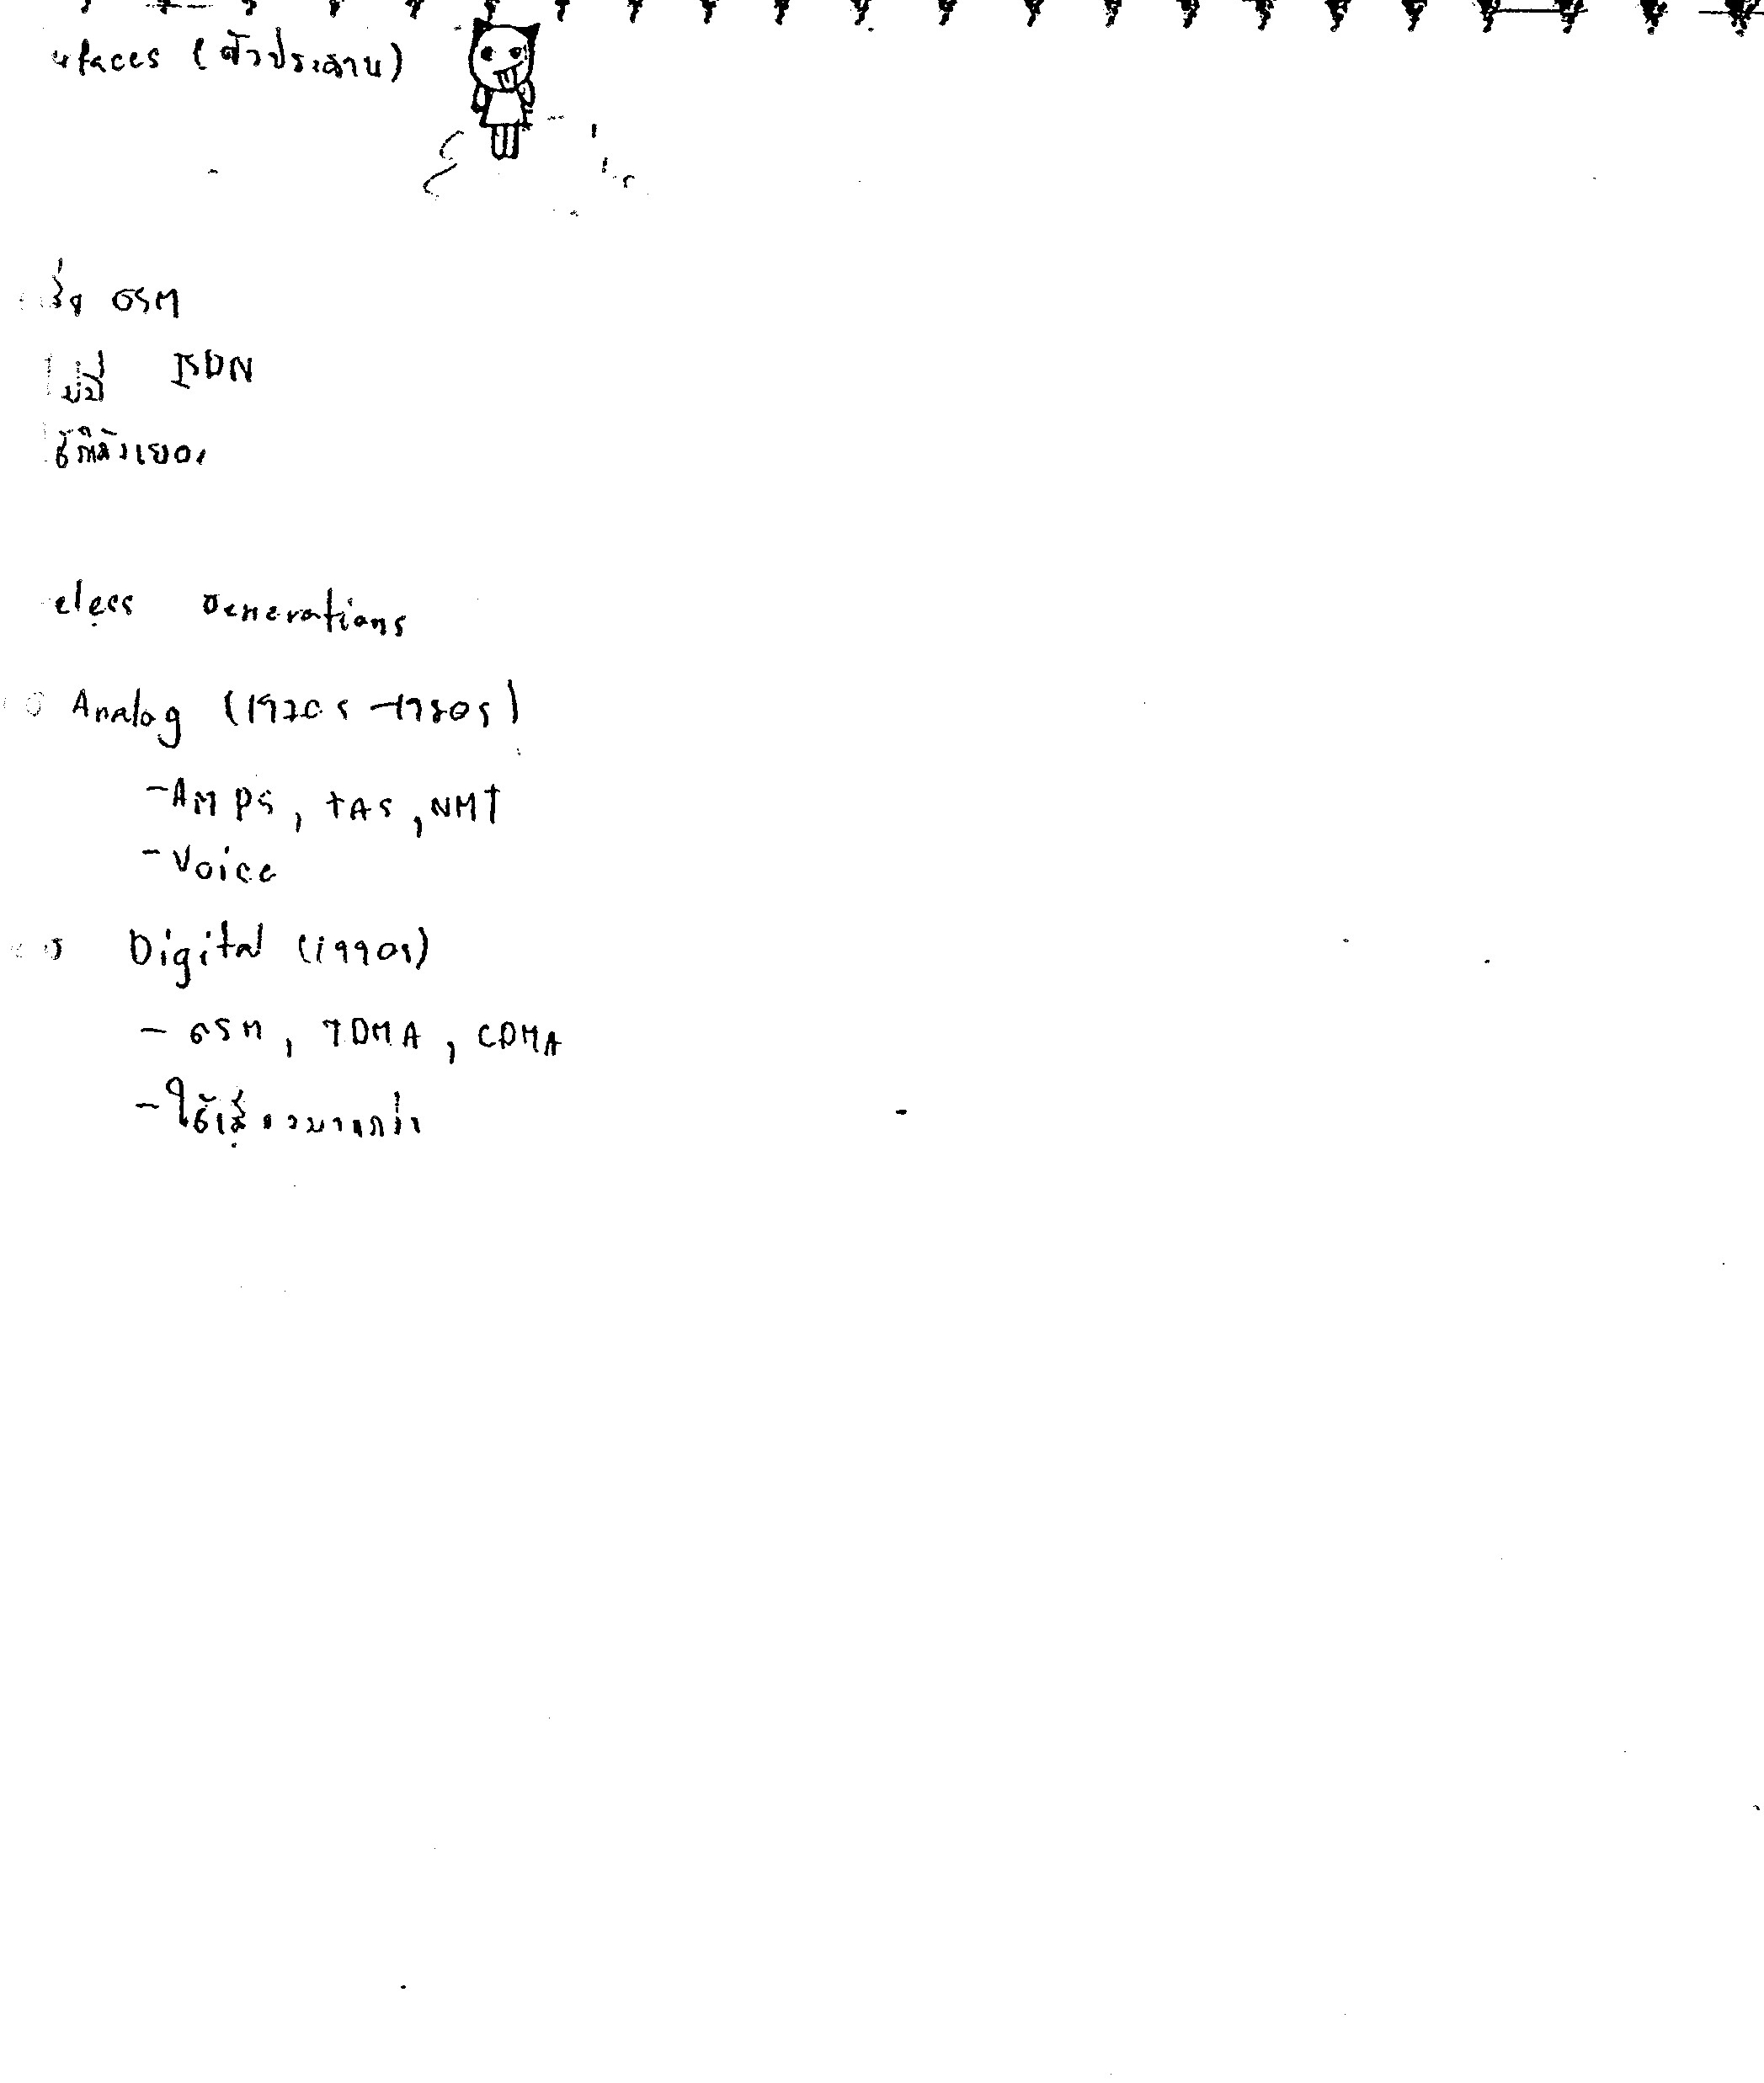 rfaces (ตัวประสาน)
GSM
ISDN
ใช้กำลังเยอะ
eless Generations
Analog (1970s-1980s)
- AMPS, TAS, NMT
- Voice
Digital (1990s)
- GSM, TDMA, CDMA